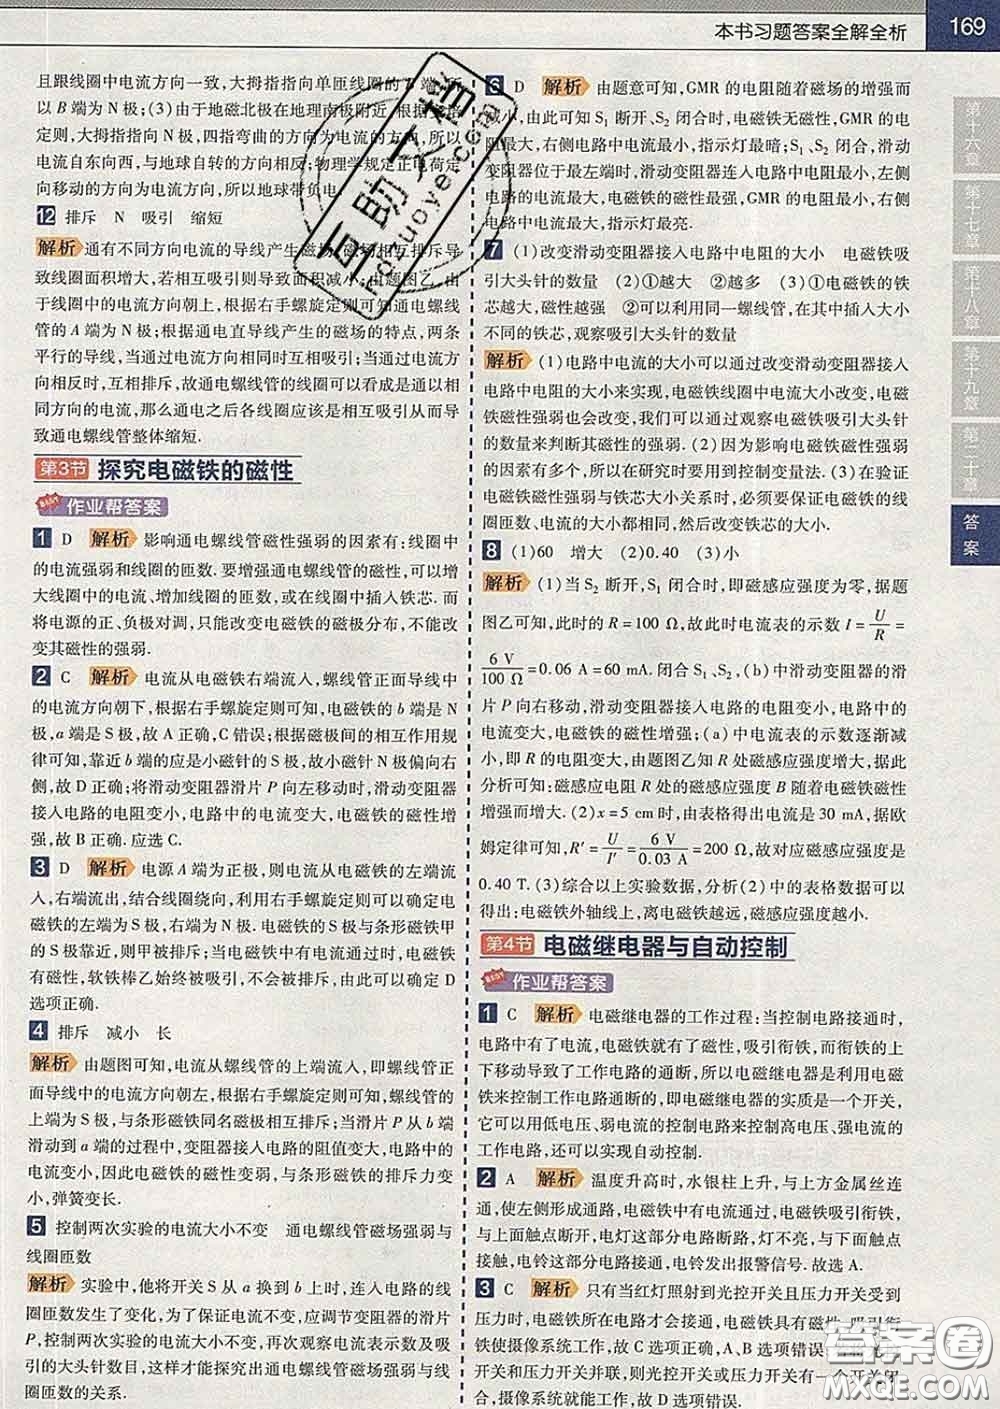 本书习题答案全解全析
169
且跟线圈中电流方向一致,大拇指指向单匝线圈的B端,所
以B端为N极;(3)由于地磁北极在地理南极附近,根据安培
定则,大拇指指向N极,四指弯曲的方向为电流方向,所以
电流自东向西,与地球自转的方向相反;物理学规定正电荷定
向移动的方向为电流方向,所以地球带负电.
12 排斥 N 吸引 缩短
解析 通有不同方向电流的导线产生磁场,磁场相互排斥导
致线圈面积增大,若相互吸引则导致面积减小;由题图乙,由
于线圈中的电流方向朝上,根据右手螺旋定则可知通电螺线
管的A端为N极;根据通电直导线产生的磁场的特点,两条
平行的导线,当通过电流方向相同时互相吸引;当通过电流方
向相反时,互相排斥,故通电螺线管的线圈可以看成是通过以
相同方向的电流,那么通电之后各线圈应该是相互吸引从而导
致通电螺线管整体缩短.
第3节 探究电磁铁的磁性
作业帮答案
1 D 解析 影响通电螺线管磁性强弱的因素有:线圈中
的电流强弱和线圈的匝数.要增强通电螺线管的磁性,可以
增大线圈中的电流、增加线圈的匝数,或在线圈中插入铁芯.而
将电源的正、负极对调,只能改变电磁铁的磁极分布,不能改
变其磁性的强弱.
2 C 解析 电流从电磁铁右端流入,螺线管正面导线中
的电流方向朝下,根据右手螺旋定则可知,电磁铁的b端是N
极,a端是S极,故A正确,C错误;根据磁极间的相互作用规
律可知,靠近b端的应是小磁针的S极,故小磁针N极偏向右
侧,故D正确;将滑动变阻器滑片P向左移动时,滑动变阻器
接入电路的电阻变小,电路中的电流变大,电磁铁的磁性增
强,故B正确.应选C.
3 D 解析 电源A端为正极,则电流从电磁铁的左端流
入,右端流出,结合线圈绕向,利用右手定则可以确定电磁铁的左端
电磁铁的左端为S极,右端为N极.电磁铁的S极与条形磁铁甲
的S极靠近,则甲被排斥;当电磁铁中有电流通过时,电磁铁
有磁性,软铁棒乙始终被吸引,不会因为电流方向而改变.故D
选项正确.
4 排斥 减小 长
解析 由题图可知,电流从螺线管的上端流入,螺线管正
面导线中的电流方向朝左,根据右手螺旋定则可知,螺线管的
上端为S极,与条形磁铁同名磁极相互排斥;当滑片P从b端
滑动到a端的过程中,变阻器接入电路的阻值变大,电路中的
电流变小,因此电磁铁的磁性变弱,与条形磁铁的排斥力变
小,弹簧变长.
5 控制两次实验的电流大小不变 通电螺线管磁场强弱与
线圈匝数
解析 实验中,他将开关S从a换到b上时,连入电路的线
圈匝数发生了变化,为了保证电流不变,应调节变阻器的滑片
P,控制两次的电流大小不变,再次观察电流表示数及吸
引的大头针数目,这样才能探究出通电螺线管磁场强弱与线
圈匝数的关系.
6 D 解析 由题意可知,GMR的电阻随着磁场的增强而
减小,由此可知S₁断开、S₂闭合时,电磁铁无磁性,GMR的电
阻最大,右侧电路中电流最小,指示灯最暗;S₁、S₂闭合,滑动
变阻器位于最左端时,滑动变阻器连入电路中电阻最小,左侧
电路的电流最大,电磁铁的磁性最强,GMR的电阻最小,右侧
电路中电流最大,指示灯最亮.
7 (1)改变滑动变阻器接入电路中电阻的大小 电磁铁吸
引大头针的数量 (2)①越大 ②越多 (3)①电磁铁的铁
芯越大,磁性越强 ②可以利用同一螺线管,在其中插入大小
不同的铁芯,观察吸引大头针的数量
解析 (1)电路中电流的大小可以通过改变滑动变阻器接入
电路中电阻的大小来实现,电磁铁线圈中电流大小改变,电磁
铁磁性强弱也会改变,我们可以通过观察电磁铁吸引大头针
的数量来判断其磁性的强弱.(2)因为影响电磁铁磁性强弱
的因素有多个,所以在研究时要用到控制变量法.(3)在验证
电磁铁磁性强弱与铁芯大小关系时,必须要保证电磁铁的线
圈匝数、电流的大小都相同,然后改变铁芯的大小.
8 (1)60 增大 (2)0.40 (3)小
解析 (1)当S₂断开,S₁闭合时,即磁感应强度为零,据题
图乙可知,此时的R=100 Ω,故此时电流表的示数I=U/R=
6 V/100 Ω=0.06 A=60 mA.闭合S₁、S₂,(b)中滑动变阻器的滑
片P向右移动,滑动变阻器接入电路的电阻变小,电路中的
电流变大,电磁铁的磁性增强;(a)中电流表的示数逐渐减
小,即R的电阻变大,由题图乙知R处磁感应强度增大.据此
分析可知:磁感应电阻R处的磁感应强度B随着电磁铁磁性
增强而增大.(2)x=5 cm时,由表格得出电流是30 mA,据欧
姆定律可知,R′=U/I′=6 V/0.03 A=200 Ω,故对应磁感应强度是
0.40 T.(3)综合以上实验数据,分析(2)中的表格数据可以
得出:电磁铁外轴线上,离电磁铁越远,磁感应强度越小.
第4节 电磁继电器与自动控制
作业帮答案
1 C 解析 电磁继电器的工作过程:当控制电路接通时,
电路中有了电流,电磁铁就有了磁性,吸引衔铁,而衔铁的上
下移动导致了工作电路的通断,所以电磁继电器是利用电磁
铁来控制工作电路通断的,即电磁继电器的实质是一个开关,
它可以用低电压、弱电流的控制电路来控制高电压、强电流的
工作电路,还可以实现自动控制.
2 A 解析 温度升高时,水银柱上升,与上方金属丝连
通,使左侧形成通路,电磁铁中有电流通过,电磁铁吸引衔铁,
与上面触点断开,电灯这部分电路断路,灯不亮,与下面触点
接触,电铃这部分电路接通,电铃发出报警信号.故选A.
3 C 解析 只有当红灯照射到光控开关且压力开关受到
压力时,电磁铁所在电路才会接通,电磁铁有磁性,吸引衔
铁使摄像系统工作,故A、B选项错误;若将光控
开关和压力开关并联,则光控开关或压力开关有一个开关闭
合,摄像系统就能工作,故D选项错误.
第十六章
第十七章
第十八章
第十九章
第二十章
答案
互助文档
huzuoye.com
答案圈
MXQE.COM